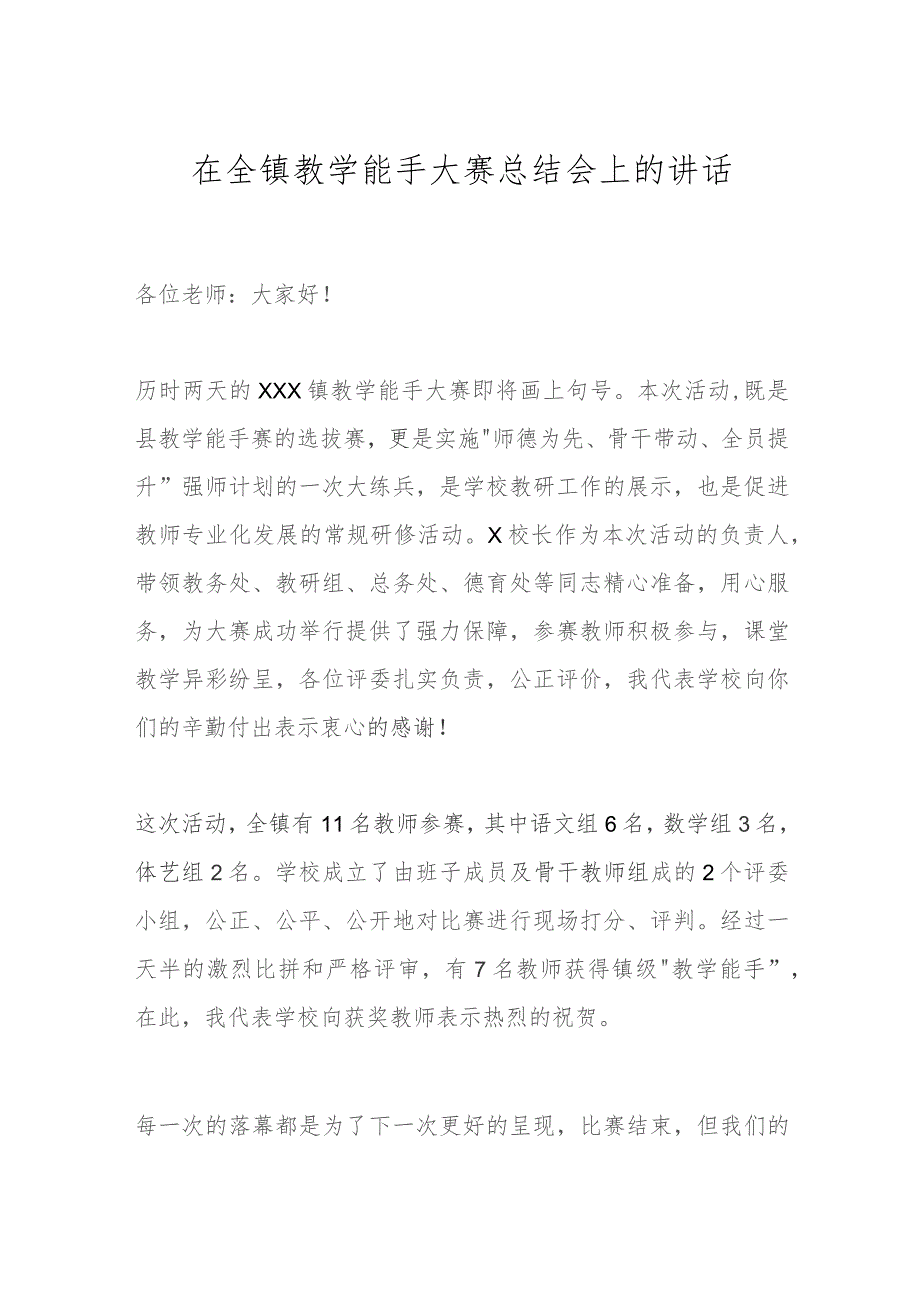 在全镇教学能手大赛总结会上的讲话
各位老师：大家好！
历时两天的 XXX 镇教学能手大赛即将画上句号。本次活动,既是
县教学能手赛的选拔赛，更是实施"师德为先、骨干带动、全员提
升”强师计划的一次大练兵，是学校教研工作的展示，也是促进
教师专业化发展的常规研修活动。X 校长作为本次活动的负责人，
带领教务处、教研组、总务处、德育处等同志精心准备，用心服
务，为大赛成功举行提供了强力保障，参赛教师积极参与，课堂
教学异彩纷呈，各位评委扎实负责，公正评价，我代表学校向你
们的辛勤付出表示衷心的感谢！
这次活动，全镇有 11 名教师参赛，其中语文组 6 名，数学组 3 名，
体艺组 2 名。学校成立了由班子成员及骨干教师组成的 2 个评委
小组，公正、公平、公开地对比赛进行现场打分、评判。经过一
天半的激烈比拼和严格评审，有 7 名教师获得镇级"教学能手”，
在此，我代表学校向获奖教师表示热烈的祝贺。
每一次的落幕都是为了下一次更好的呈现，比赛结束，但我们的